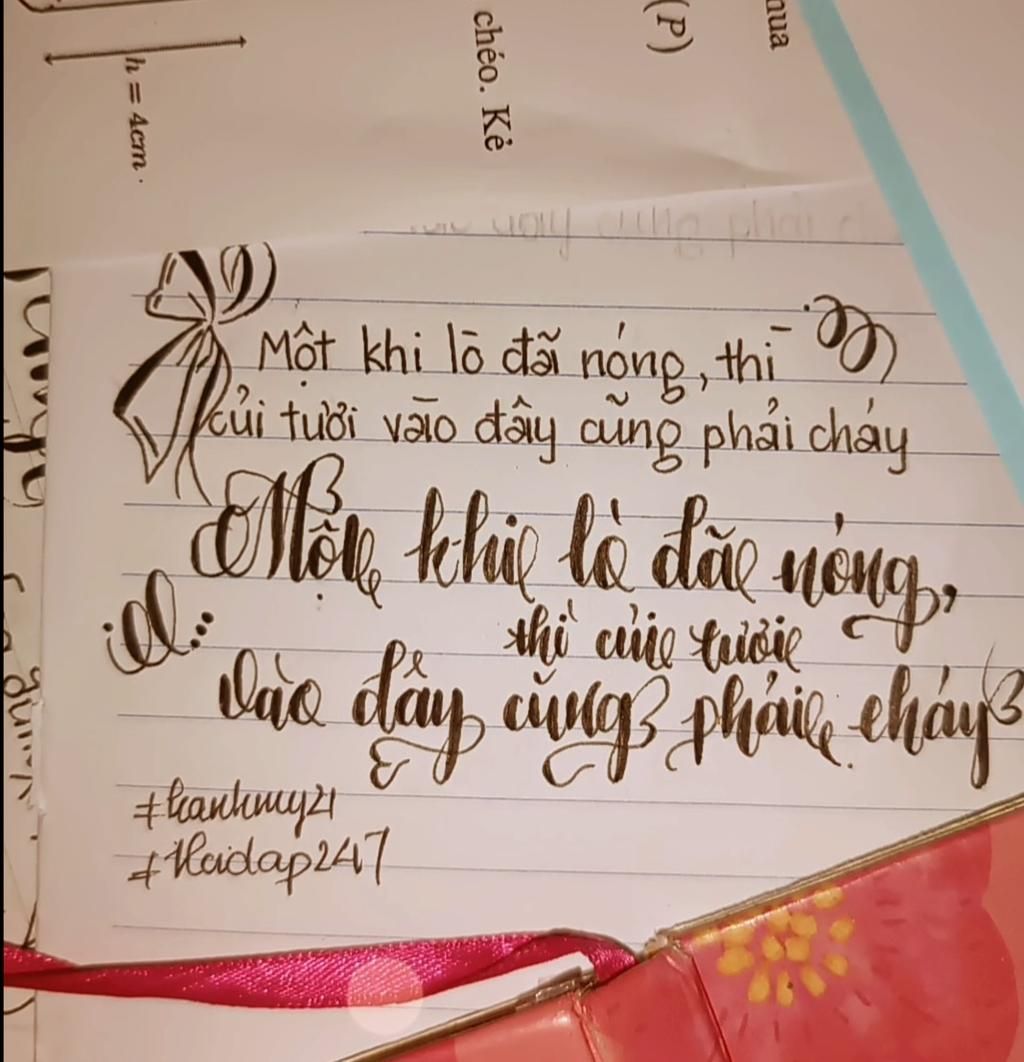 h = 4cm.
chéo. Kẻ
(P)
Một khi lò đã nóng, thì
củi tươi vào đây cũng phải cháy
Một khi lò đã nóng,
thì củi tươi
vào đây cũng phải cháy
#hanhmy21
#Hoidap247